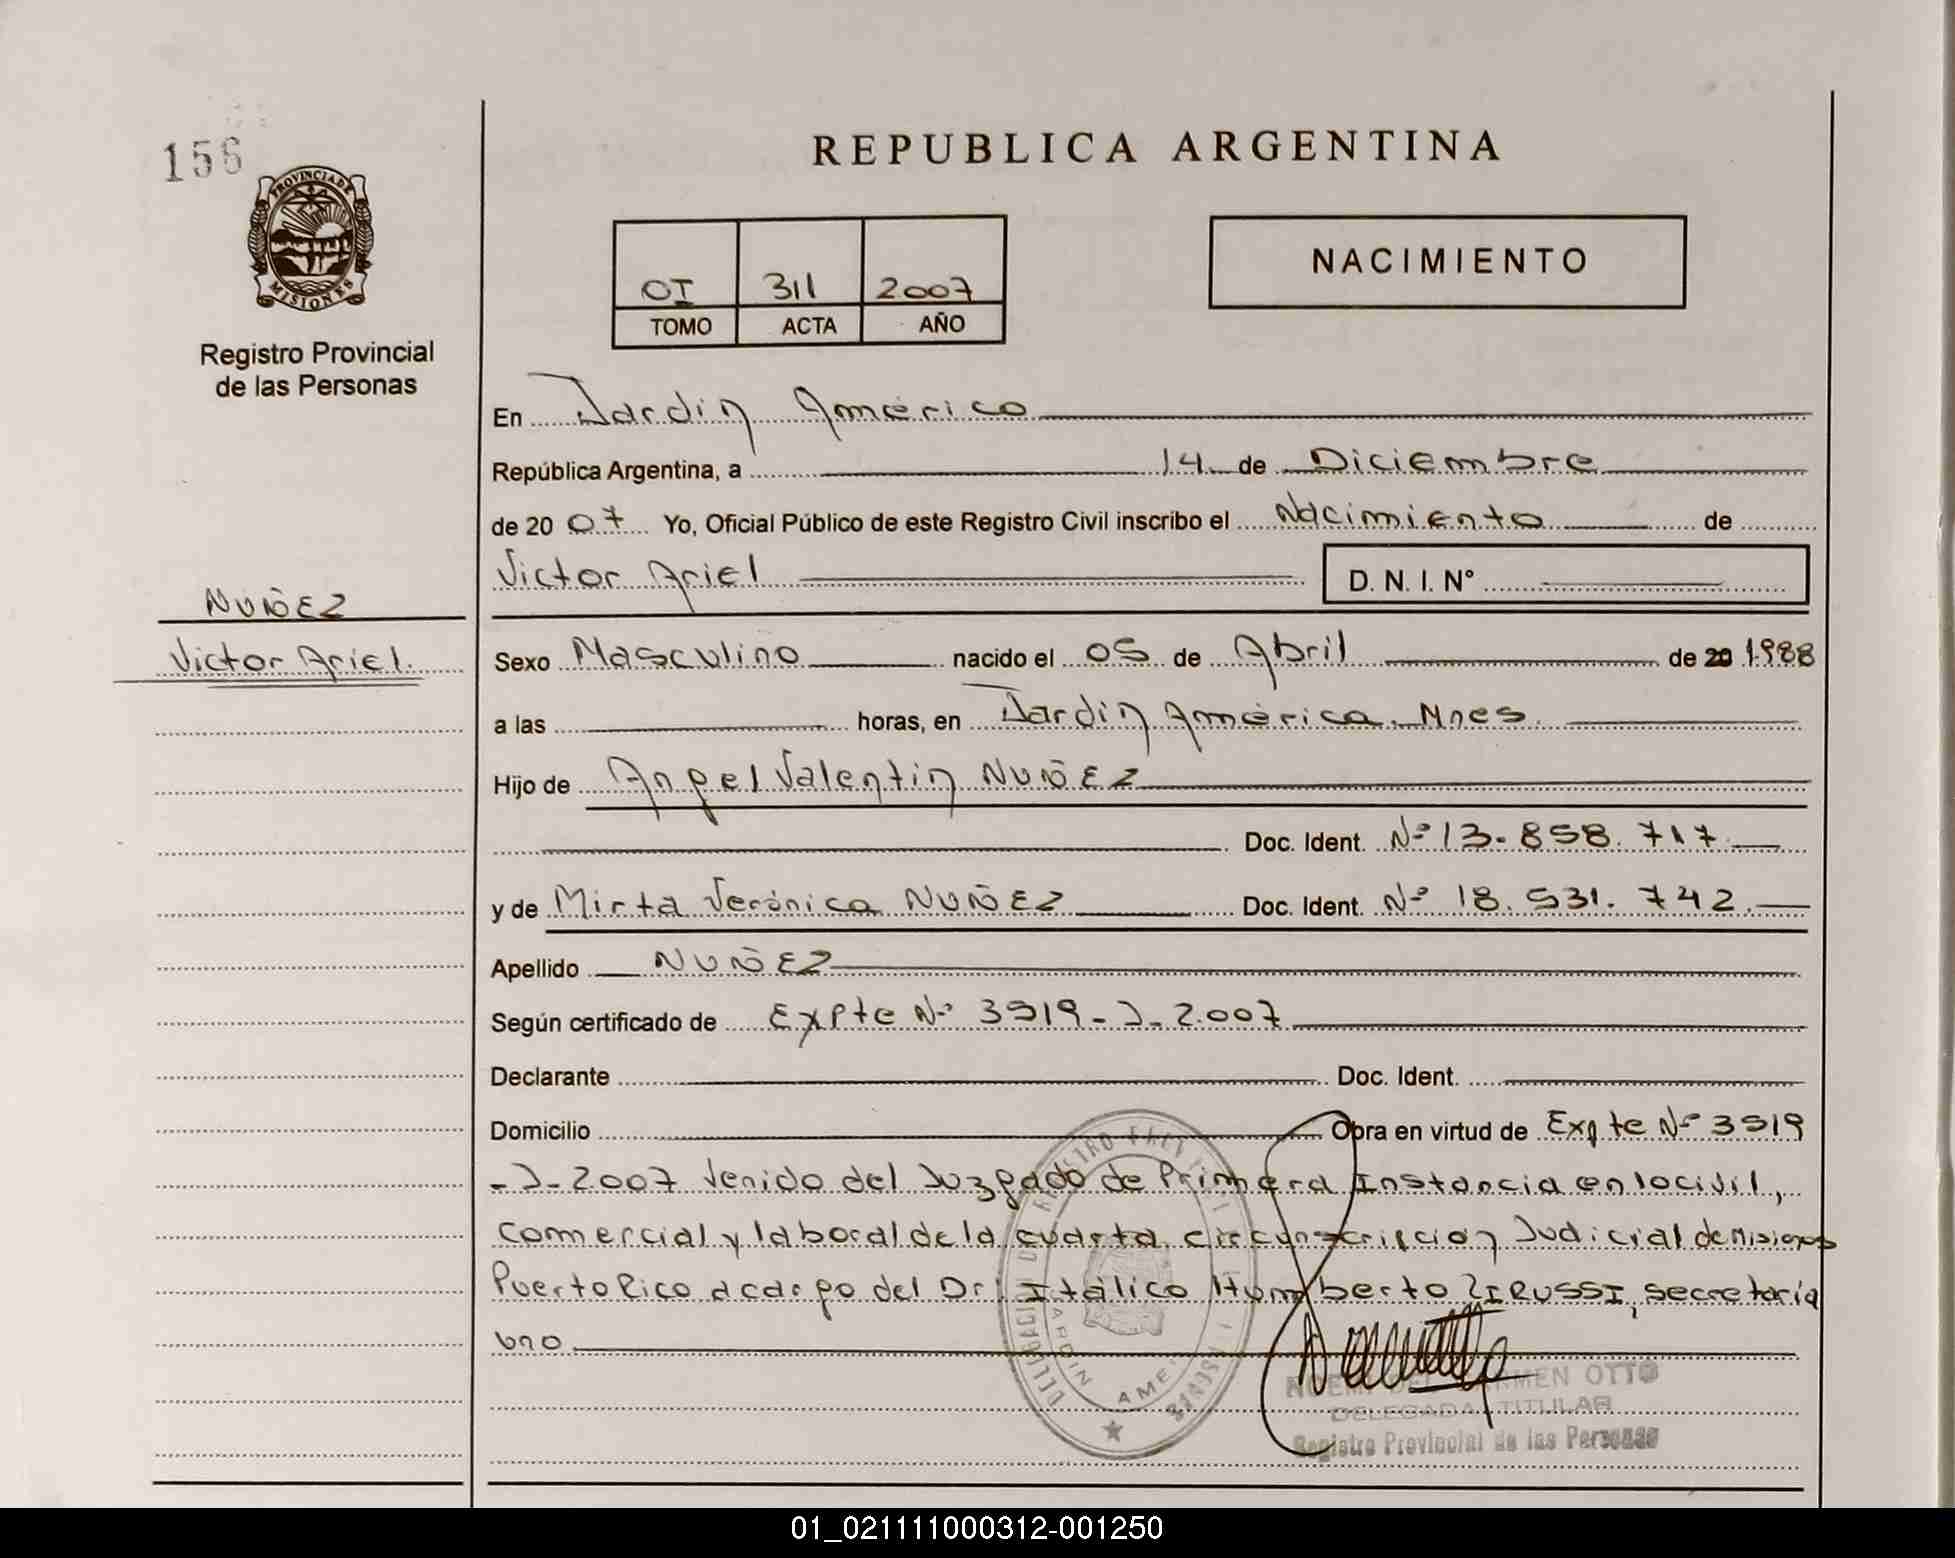 156
REPUBLICA ARGENTINA
PROVINCIA DE
MISIONES
Registro Provincial
de las Personas
OI 311 2007
TOMO ACTA AÑO
NACIMIENTO
En Jardin América
República Argentina, a 14 de Diciembre
de 20 07 Yo, Oficial Público de este Registro Civil inscribo el Nacimiento de
Victor Ariel D. N. I. N°
NUÑEZ
Victor Ariel.
Sexo Masculino nacido el 05 de Abril de 20 1988
a las horas, en Jardin América. Mnes.
Hijo de Angel Valentin NUÑEZ
Doc. Ident. Nº 13.858.717
y de Mirta Verónica NUÑEZ Doc. Ident. Nº 18.531.742.
Apellido NUÑEZ
Según certificado de Expte Nº 3519-J-2007
Declarante Doc. Ident.
Domicilio Obra en virtud de Expte Nº 3519
-J-2007 venido del Juzgado de Primera Instancia en lo civil,
Comercial y laboral de la cuarta circunscripcion Judicial de Misiones
Puerto Rico a cargo del Dr. Itálico Humberto ZIRUSSI, secretaria
uno
JARDIN AME
NOEMI DEL CARMEN OTTO
DELEGADA TITULAR
Registro Provincial de las Personas
01_021111000312-001250